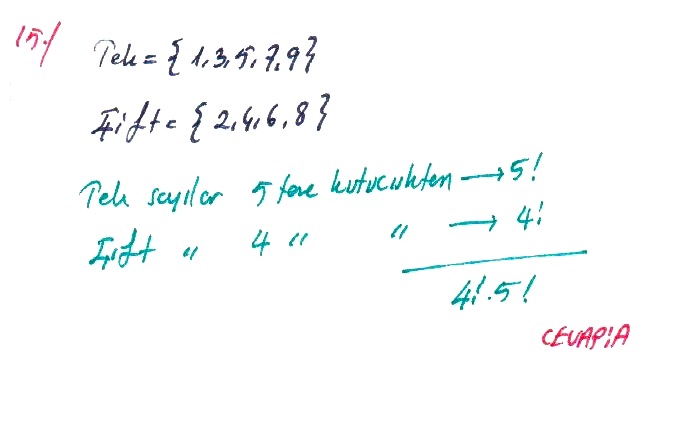 15-)
Tek = {1,3,5,7,9}
Çift = {2,4,6,8}
Tek sayılar 5 tane kutucukten → 5!
Çift " 4 " " → 4!
4!.5!
CEVAP:A